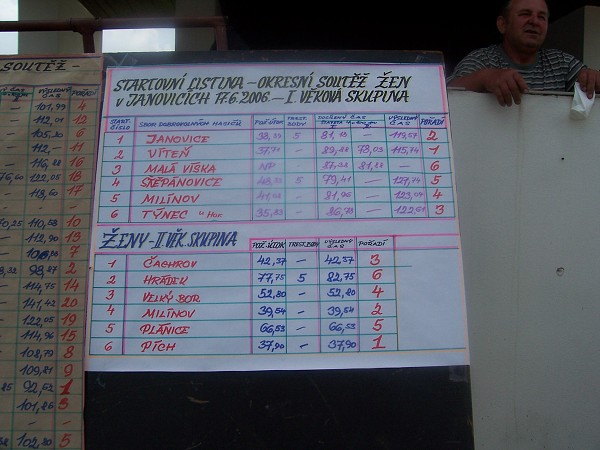 SOUTĚŽ -
VÝSLEDNÝ ČAS POŘADÍ
101,99 4
112,01 12
105,20 6
112,- 11
116,28 16
122,05 18
118,60 17
110,58 10
112,90 13
7
98,47 2
114,75 14
141,42 20
122,05 19
114,96 15
108,79 8
109,81 9
92,52 1
101,86 3
102,80 5
STARTOVNÍ LISTINA - OKRESNÍ SOUTĚŽ ŽEN
V JANOVICÍCH 17.6.2006. - I. VĚKOVÁ SKUPINA
START. ČÍSLO SBOR DOBROVOLNÝCH HASIČŮ POŽ. ÚTOK TREST. BODY DOCÍLENÝ ČAS VÝSLEDNÝ ČAS POŘADÍ
1 JANOVICE 5 - 2
2 VÍTEŇ - 73,03 115,74 1
3 MALÁ VÍSKA NP - 81,88 - 6
4 ŠTĚPÁNOVICE 5 79,41 - 127,74 5
5 MILÍNOV - 81,96 - 4
6 TÝNEC - 86,73 - 3
ŽENY - II. VĚK. SKUPINA
POŽ. ÚTOK TREST. BODY VÝSLEDNÝ ČAS POŘADÍ
1 ČACHROV 42,37 - 42,37 3
2 HRÁDEK 77,75 5 82,75 6
3 VELKÝ BOR 52,80 - 52,80 4
4 MILÍNOV 39,54 - 39,54 2
5 PLÁNICE 66,53 - 66,53 5
6 PÍCH 37,90 - 37,90 1